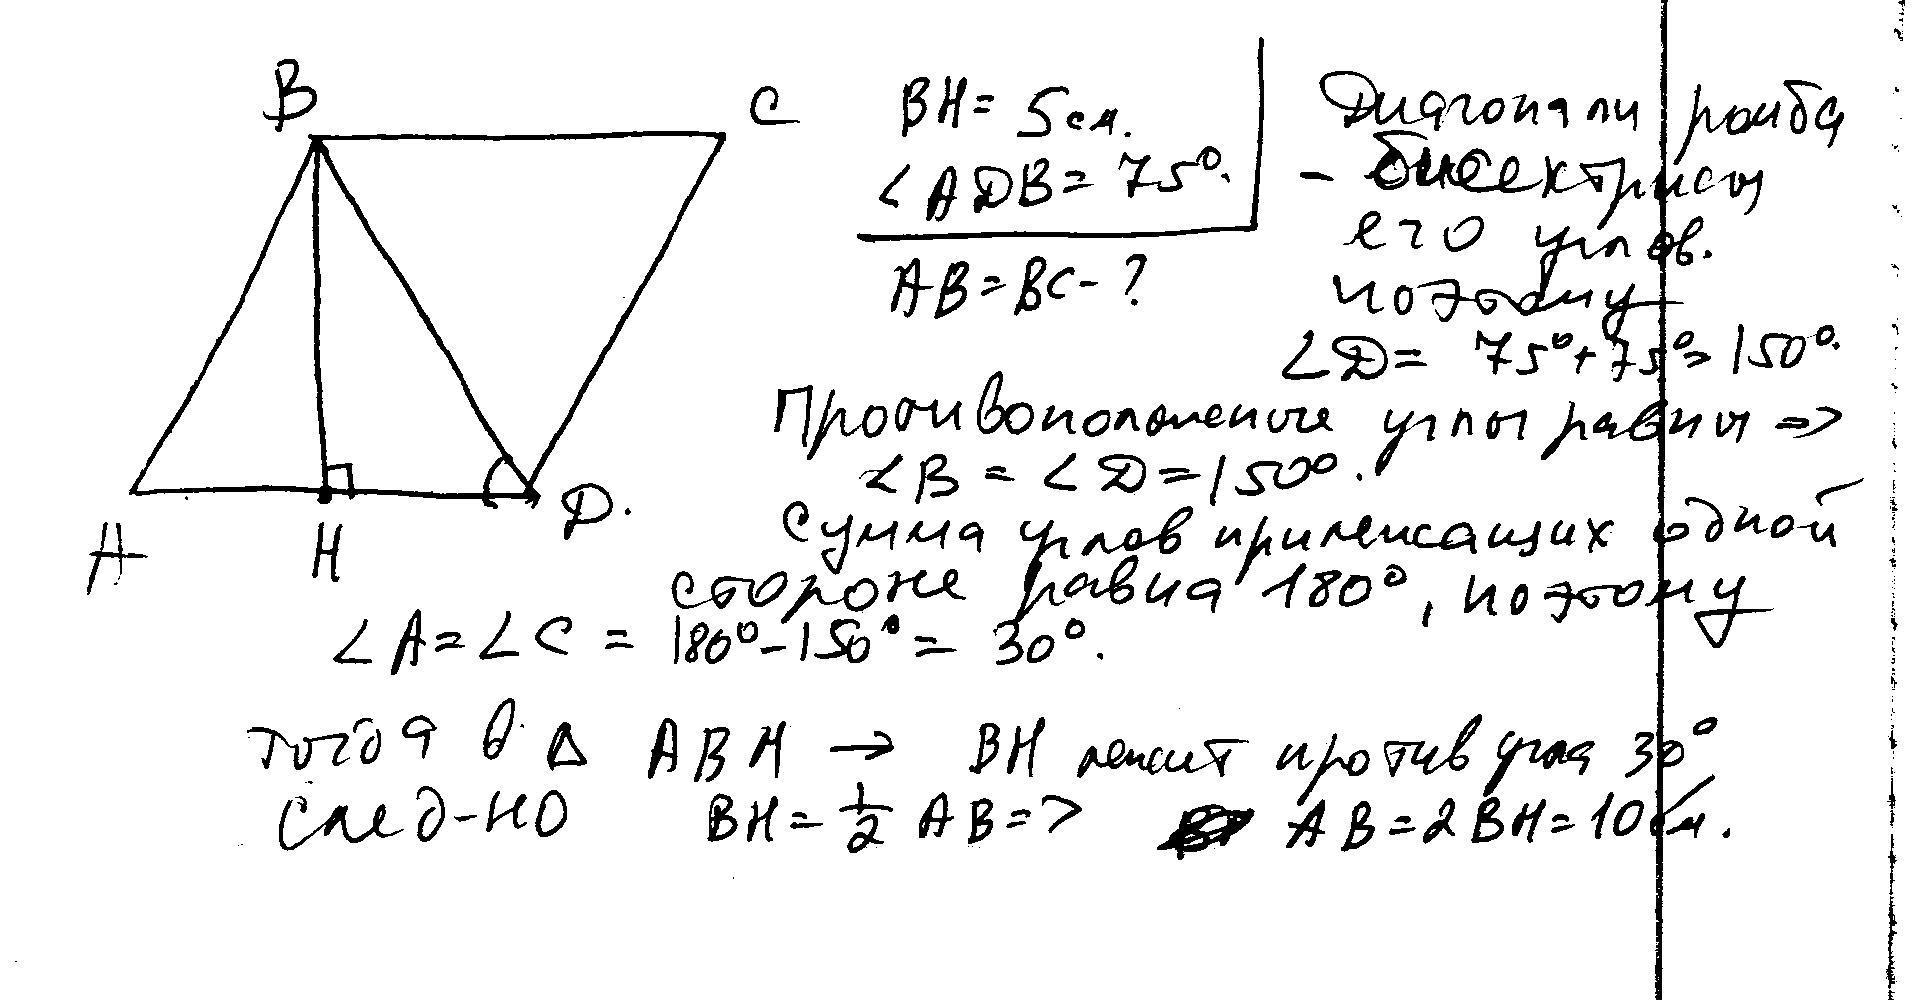 B
C
A
H
D.
BH = 5 см.
∠ADB = 75°.
AB = BC - ?
Диагонали ромба
- биссектрисы
его углов.
поэтому
∠D = 75° + 75° = 150°.
Противоположные углы равны =>
∠B = ∠D = 150°.
Сумма углов прилежащих одной
стороне равна 180°, поэтому
∠A = ∠C = 180° - 150° = 30°.
тогда в Δ ABH → BH лежит против угла 30°
след-но BH = 1/2 AB => AB = 2BH = 10 см.